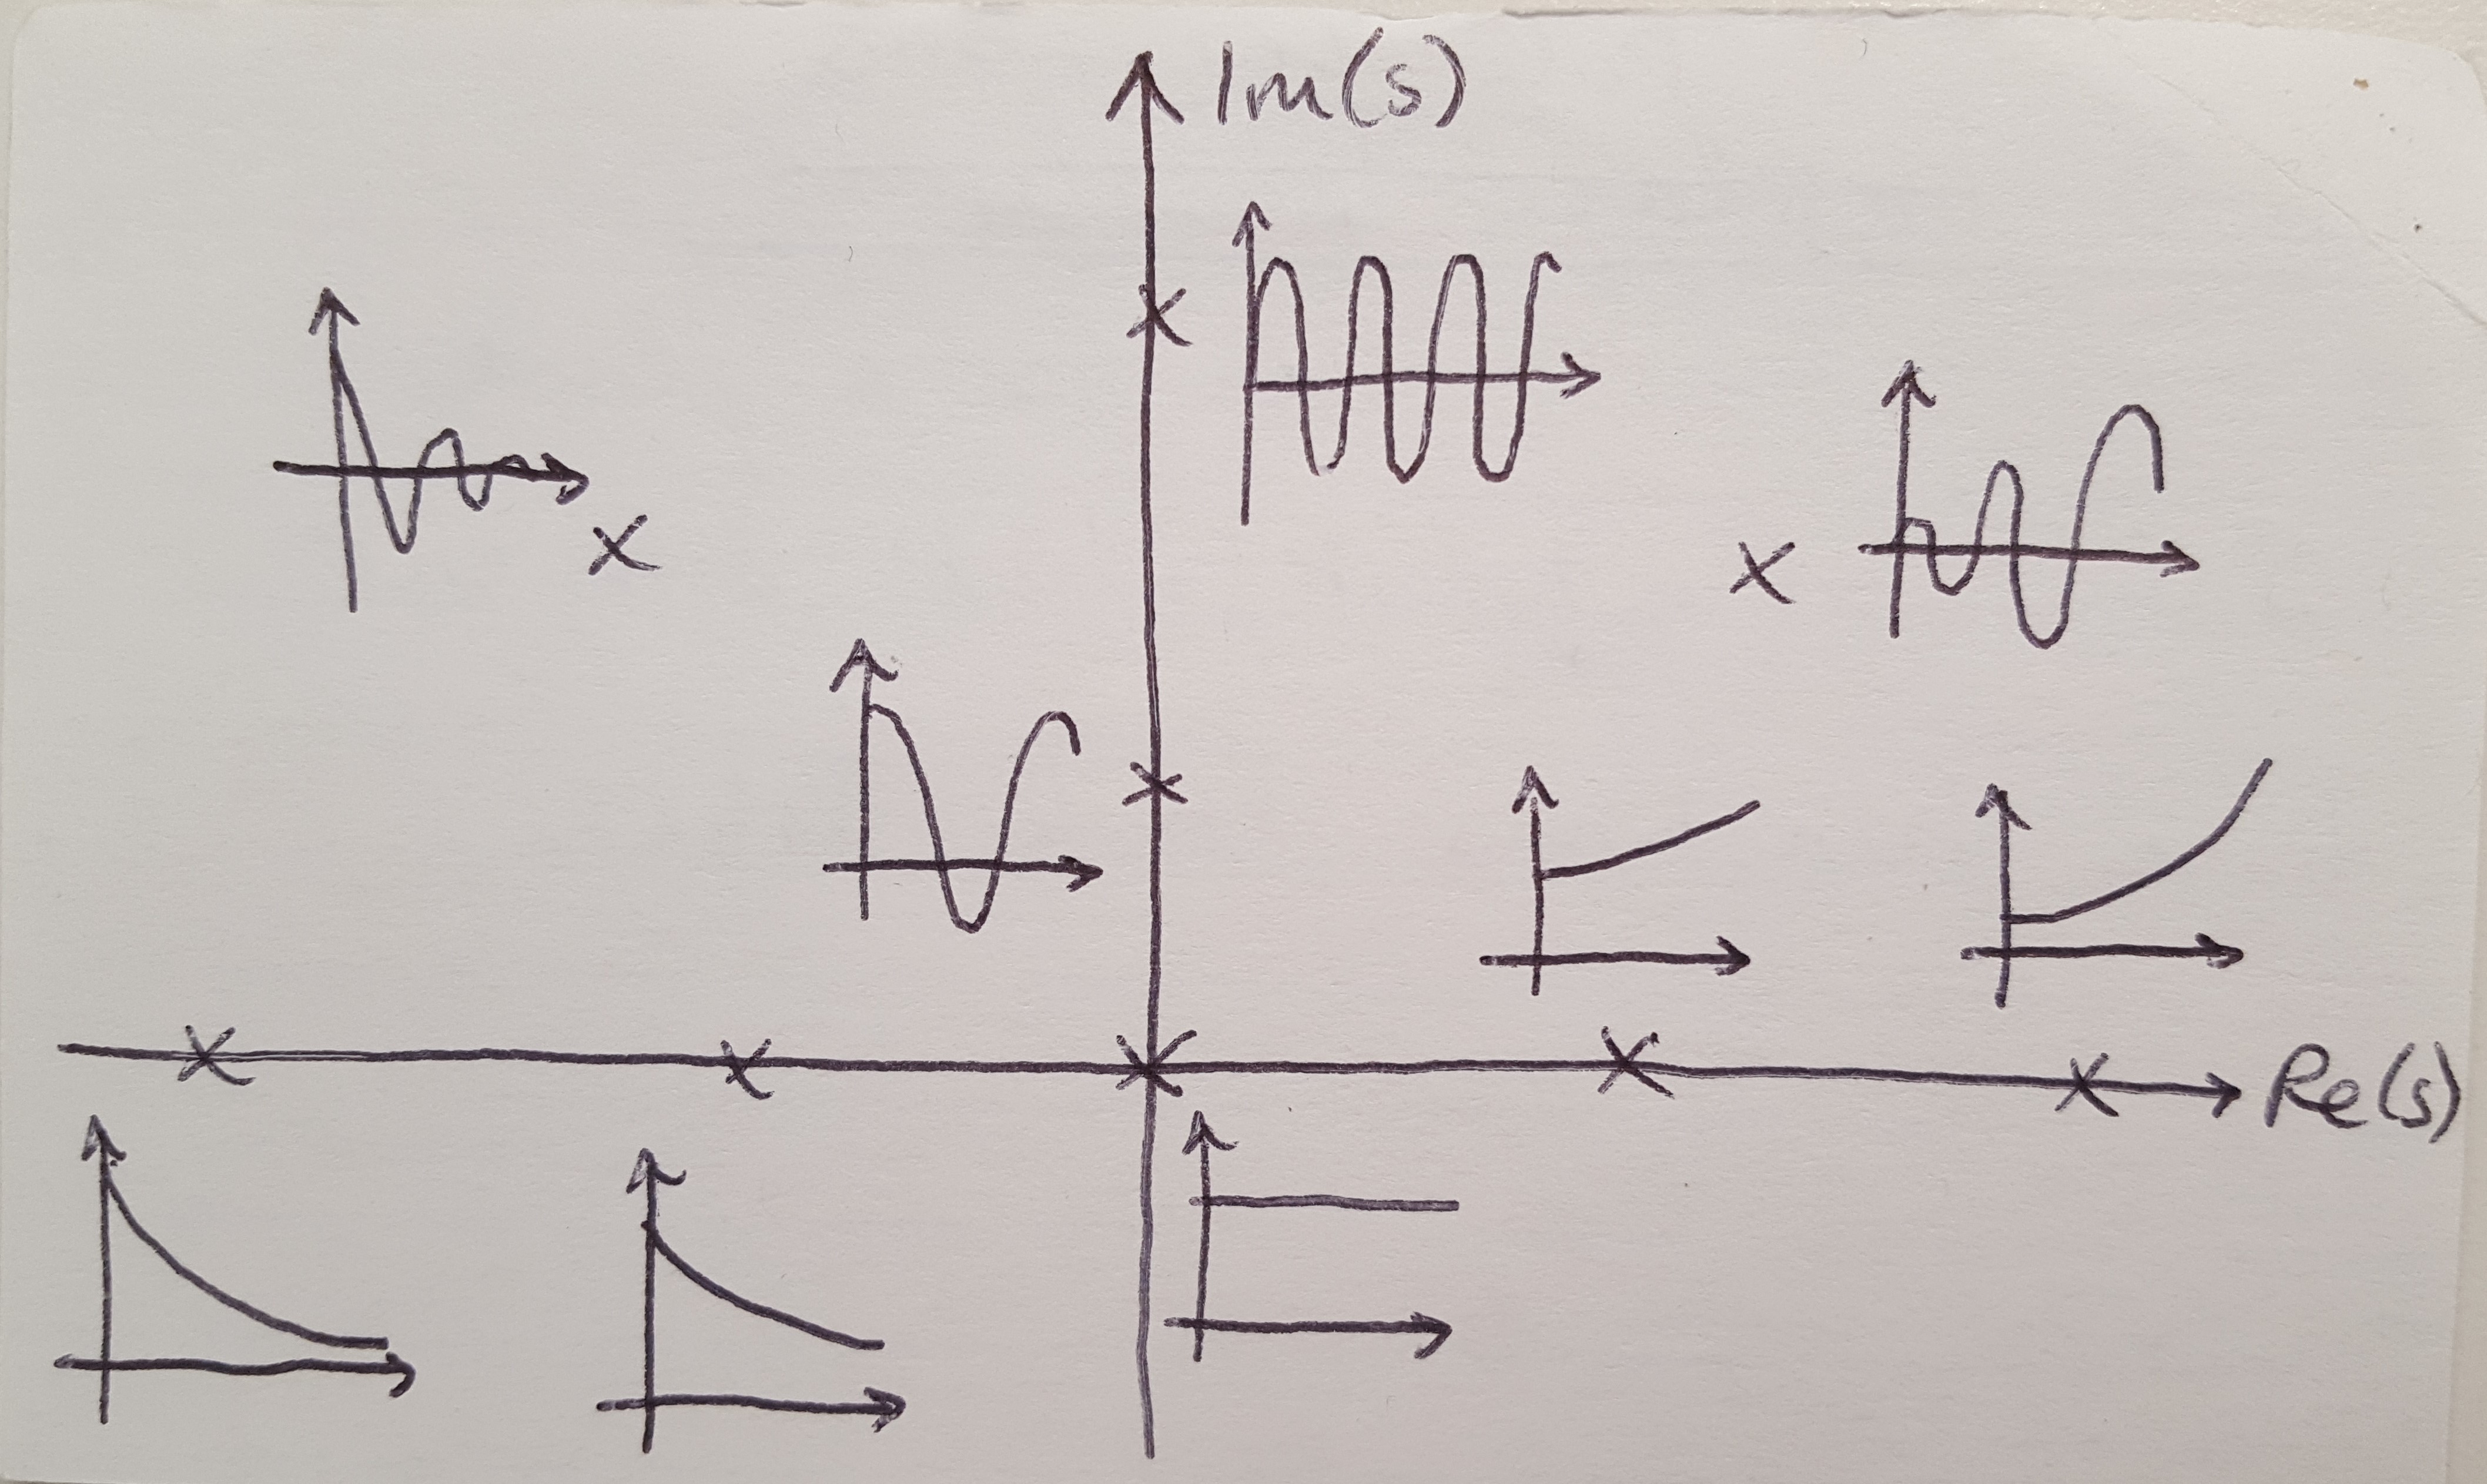 Im(s)
Re(s)